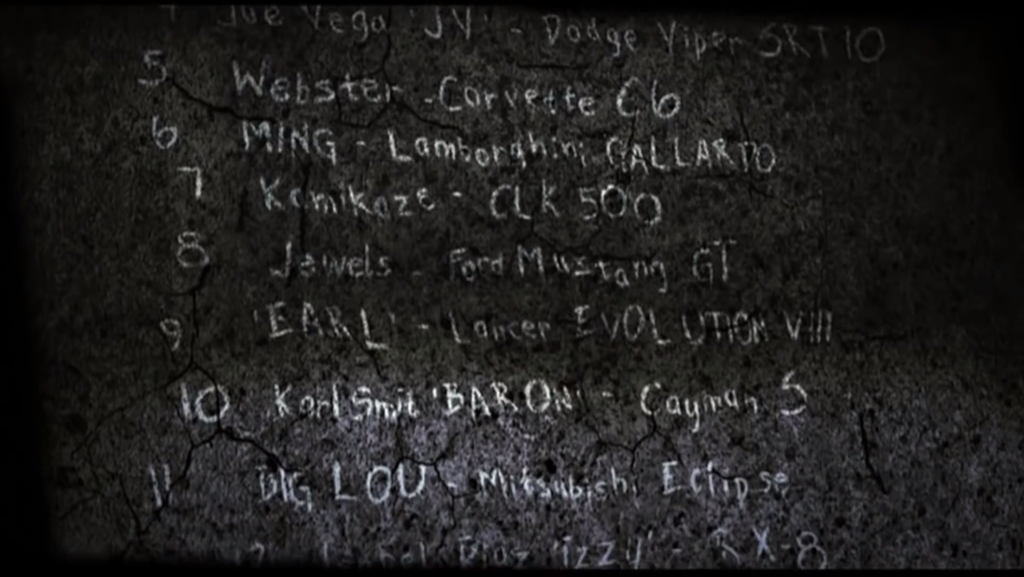 Joe Vega 'JV' - Dodge Viper SRT10
5 Webster - Corvette C6
6 MING - Lamborghini GALLARDO
7 Kamikaze - CLK 500
8 Jewels - Ford Mustang GT
9 'EARL' - Lancer EVOLUTION VIII
10 Karl Smit 'BARON' - Cayman S
11 BIG LOU - Mitsubishi Eclipse
'izzy' - RX-8